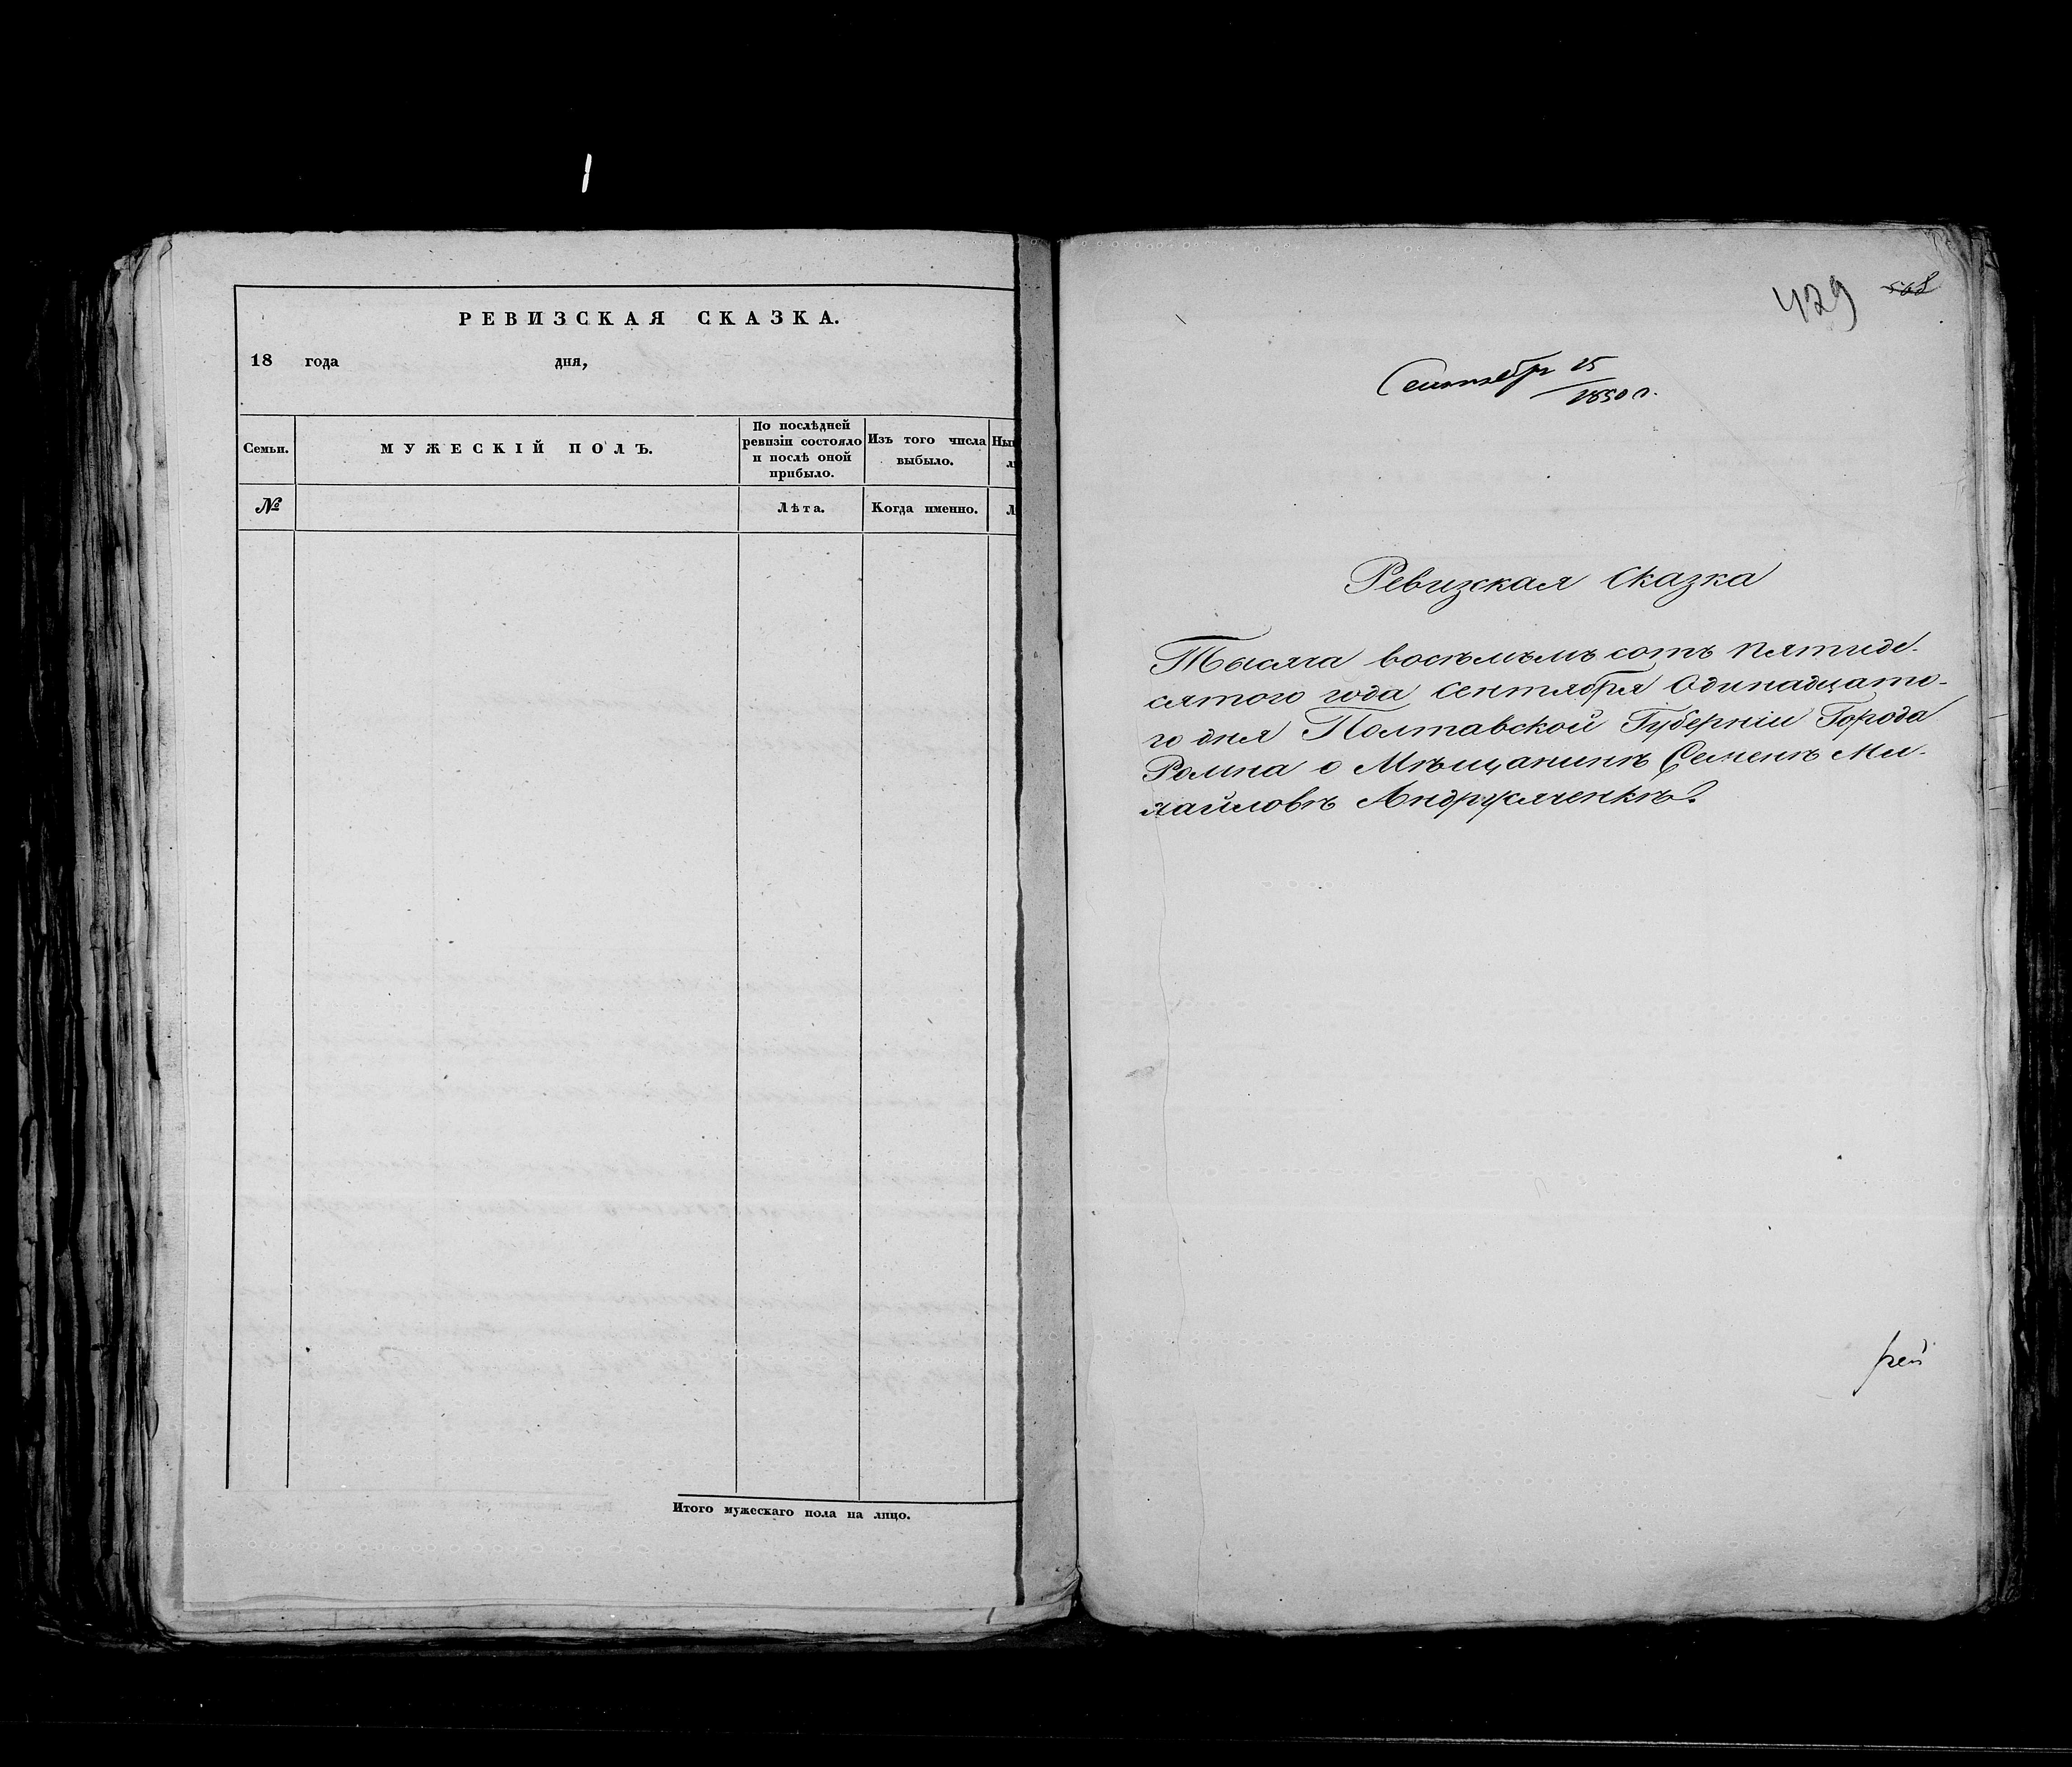 РЕВИЗСКАЯ СКАЗКА.
18 года дня,
Семьи.
МУЖЕСКІЙ ПОЛЪ.
По послѣдней
ревизіи состояло
и послѣ оной
прибыло.
Изъ того числа
выбыло.
№
Лѣта.
Когда именно.
Итого мужескаго пола на лицо.
429 568
Сентябр 25
1850 г.
Ревизская Сказка
Тысяча восѣмъмъ сотъ пятиде-
сятого года сентября Одинадцато-
го дня Полтавской Губерніи Города
Ромна о Мѣщанинѣ Семенѣ Ми-
хайловѣ Андрусяченкѣ.